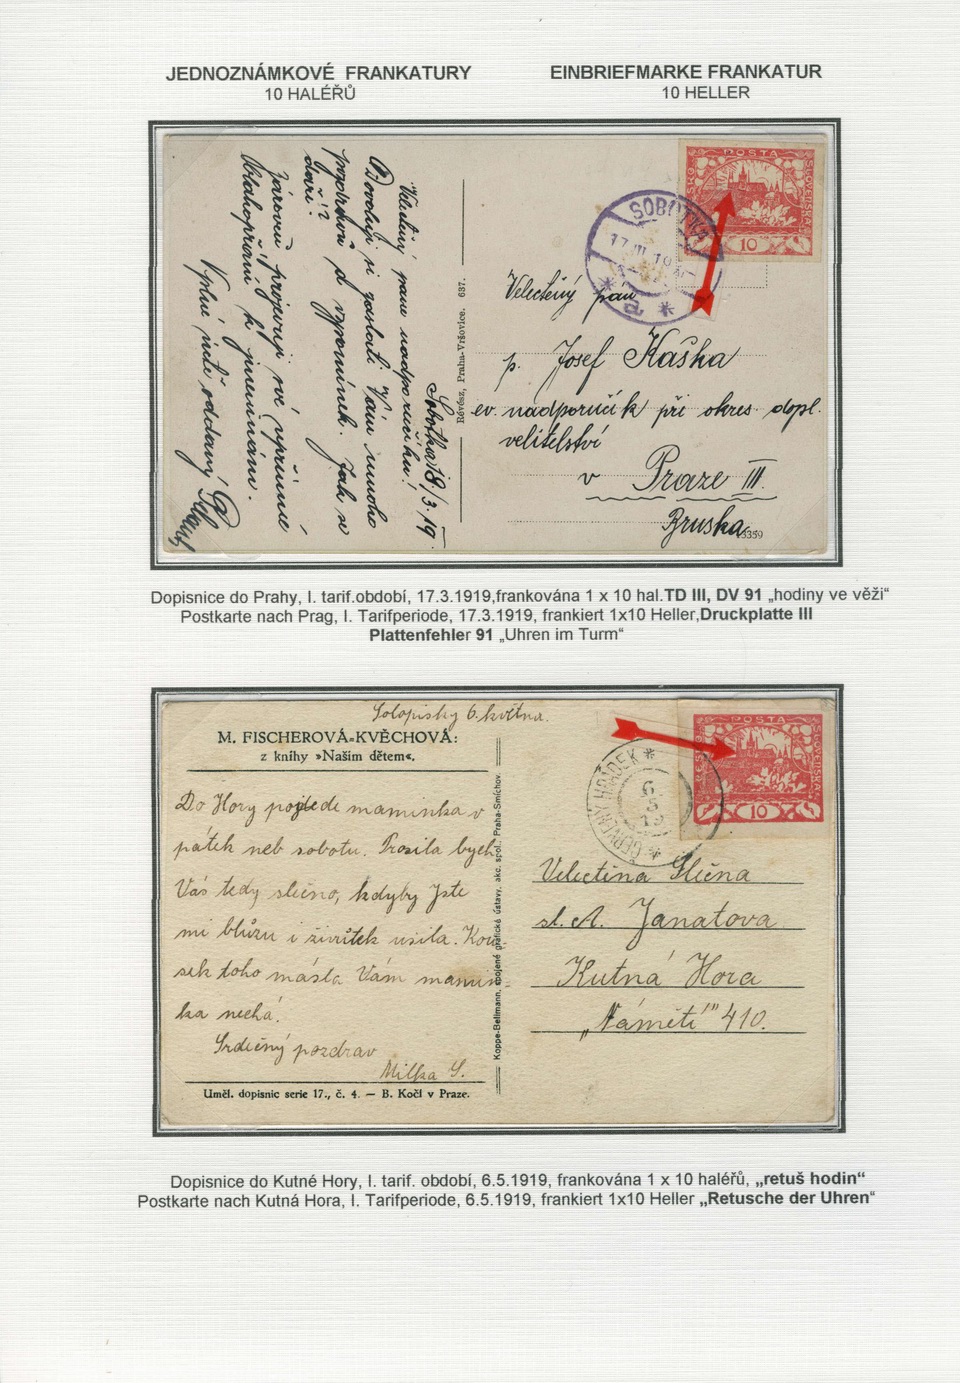 JEDNOZNÁMKOVÉ FRANKATURY
10 HALÉŘŮ
EINBRIEFMARKE FRANKATUR
10 HELLER
Velectěný pane nadporučíku!
Sobotka 18/3.19.
Dovoluji si zaslati Vám mnoho
pozdravů a vzpomínek. Jak se
daří!?
Zároveň projevuji své upřímné
blahopřání k jmeninám.
Vždy oddaný
Révész, Praha-Vršovice. 637.
POSTA
ČESKO
SLOVENSKÁ
10
SOBOTKA
17 III 19
a
Velectěný pan
p. Josef Kaška
ev. nadporučík při okres dopl.
velitelství
v Praze III.
Bruska
5359
Dopisnice do Prahy, I. tarif.období, 17.3.1919,frankována 1 x 10 hal.TD III, DV 91 „hodiny ve věži“
Postkarte nach Prag, I. Tarifperiode, 17.3.1919, frankiert 1x10 Heller,Druckplatte III
Plattenfehler 91 „Uhren im Turm“
Solopisky 6. května.
M. FISCHEROVÁ=KVĚCHOVÁ:
z knihy »Našim dětem«.
Do Hory pojede maminka v
pátek neb sobotu. Prosila bych
Vás tedy slečno, kdyby jste
mi blůzu i živůtek ušila. Kou-
sek toho másla Vám mamin=
ka nechá.
Srdečný pozdrav
Milka S.
Uměl. dopisnic serie 17., č. 4. — B. Kočí v Praze.
Koppe-Bellmann, spojené grafické ústavy, akc. spol., Praha-Smíchov.
POSTA
ČESKO
SLOVENSKÁ
10
ČERVENÝ HRÁDEK
6
5
19
Velectěna Slečna
sl. A. Janatova
Kutná Hora
„Námětí“ 410.
Dopisnice do Kutné Hory, I. tarif. období, 6.5.1919, frankována 1 x 10 haléřů, „retuš hodin“
Postkarte nach Kutná Hora, I. Tarifperiode, 6.5.1919, frankiert 1x10 Heller „Retusche der Uhren“